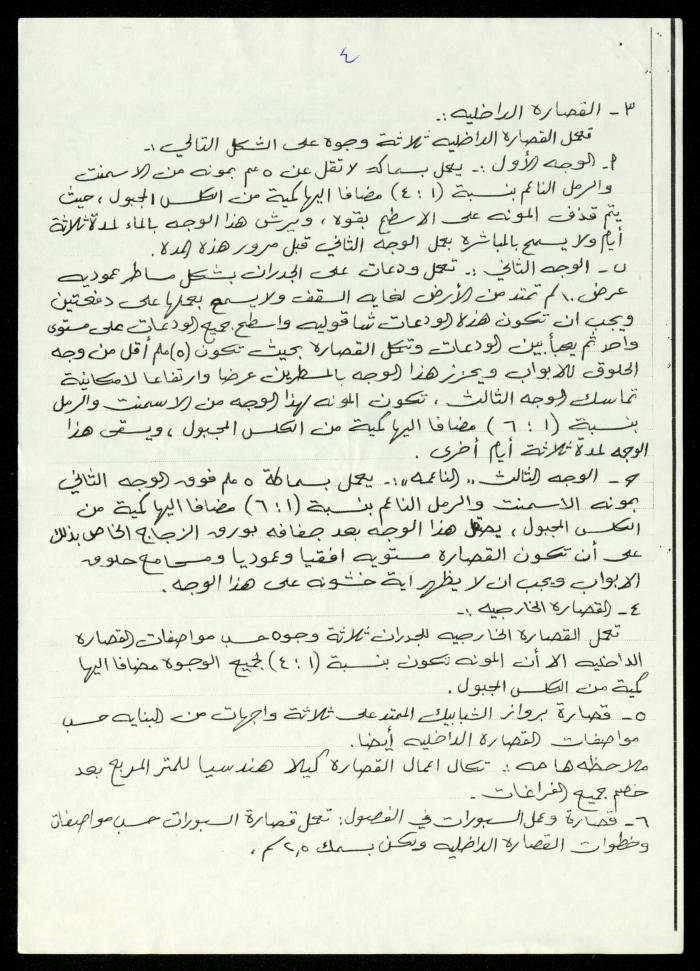 ٤
٣- القصارة الداخليه :-
تعمل القصارة الداخليه ثلاثة وجوه على الشكل التالي :-
أ- الوجه الأول :- يعمل بسماكه لا تقل عن ٥ مم بمونه من الاسمنت
والرمل الناعم بنسبة (١ : ٤) مضافا اليها كمية من الكلس المجبول ، حيث
يتم قذف المونه على الاسطح بقوه ، ويرش هذا الوجه بالماء لمدة ثلاثة
أيام ولا يسمح بالمباشرة بعمل الوجه الثاني قبل مرور هذه المده .
ب- الوجه الثاني :- تعمل ودعات على الجدران بشكل مساطر عموديه
عرض ١٠ سم تمتد من الأرض لغاية السقف ولا يسمح بعملها على دفعتين
ويجب ان تكون هذه الودعات شاقوليه واسطح جميع الودعات على مستوى
واحد ثم يعبأ بين الودعات وتكمل القصارة بحيث تكون (٥) ملم أقل من وجه
الحلوق للابواب ويحزز هذا الوجه بالمسطرين عرضا وارتفاعا لامكانية
تماسك الوجه الثالث ، تكون المونه لهذا الوجه من الاسمنت والرمل
بنسبة (١ : ٦) مضافا اليها كمية من الكلس المجبول ، ويسقى هذا
الوجه لمدة ثلاثة أيام أخرى .
ج- الوجه الثالث "الناعمه" :- يعمل بسماكة ٥ ملم فوق الوجه الثاني
بمونه الاسمنت والرمل الناعم بنسبة (١ : ٦) مضافا اليها كمية من
الكلس المجبول ، يصقل هذا الوجه بعد جفافه بورق الزجاج الخاص بذلك
على أن تكون القصارة مستويه افقيا وعموديا ومع حلوق
الابواب ويجب ان لا يظهر أية خشونه على هذا الوجه .
٤- القصارة الخارجيه :-
تعمل القصارة الخارجيه للجدران ثلاثة وجوه حسب مواصفات القصارة
الداخليه الا أن المونه تكون بنسبة (١ : ٤) لجميع الوجوه مضافا اليها
كمية من الكلس المجبول .
٥- قصارة برواز الشبابيك الممتد على ثلاثة واجهات من البنايه حسب
مواصفات القصارة الداخليه أيضا .
ملاحظه هامه :- تكال اعمال القصارة كيلا هندسيا للمتر المربع بعد
خصم جميع الفراغات .
٦- قصارة وعمل السبورات في الفصول : تعمل قصارة السبورات حسب مواصفات
وخطوات القصارة الداخليه ولكن بسمك ٢,٥ سم .